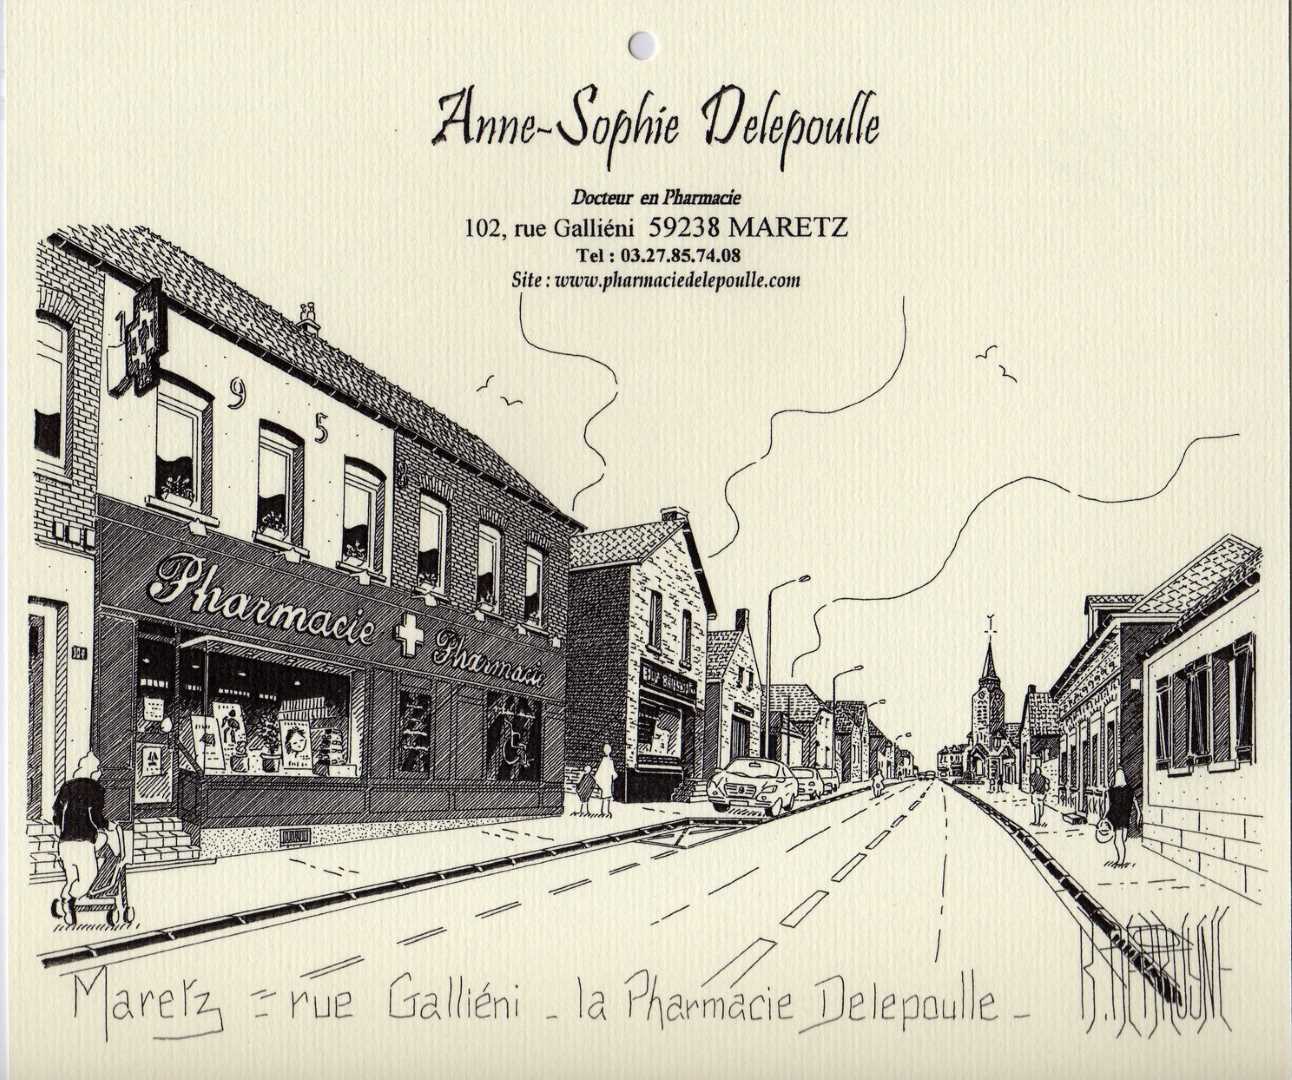 Anne-Sophie Delepoulle
Docteur en Pharmacie
102, rue Galliéni 59238 MARETZ
Tel : 03.27.85.74.08
Site : www.pharmaciedelepoulle.com
1 9 5
Pharmacie
Pharmacie
Maretz = rue Galliéni - la Pharmacie Delepoulle -